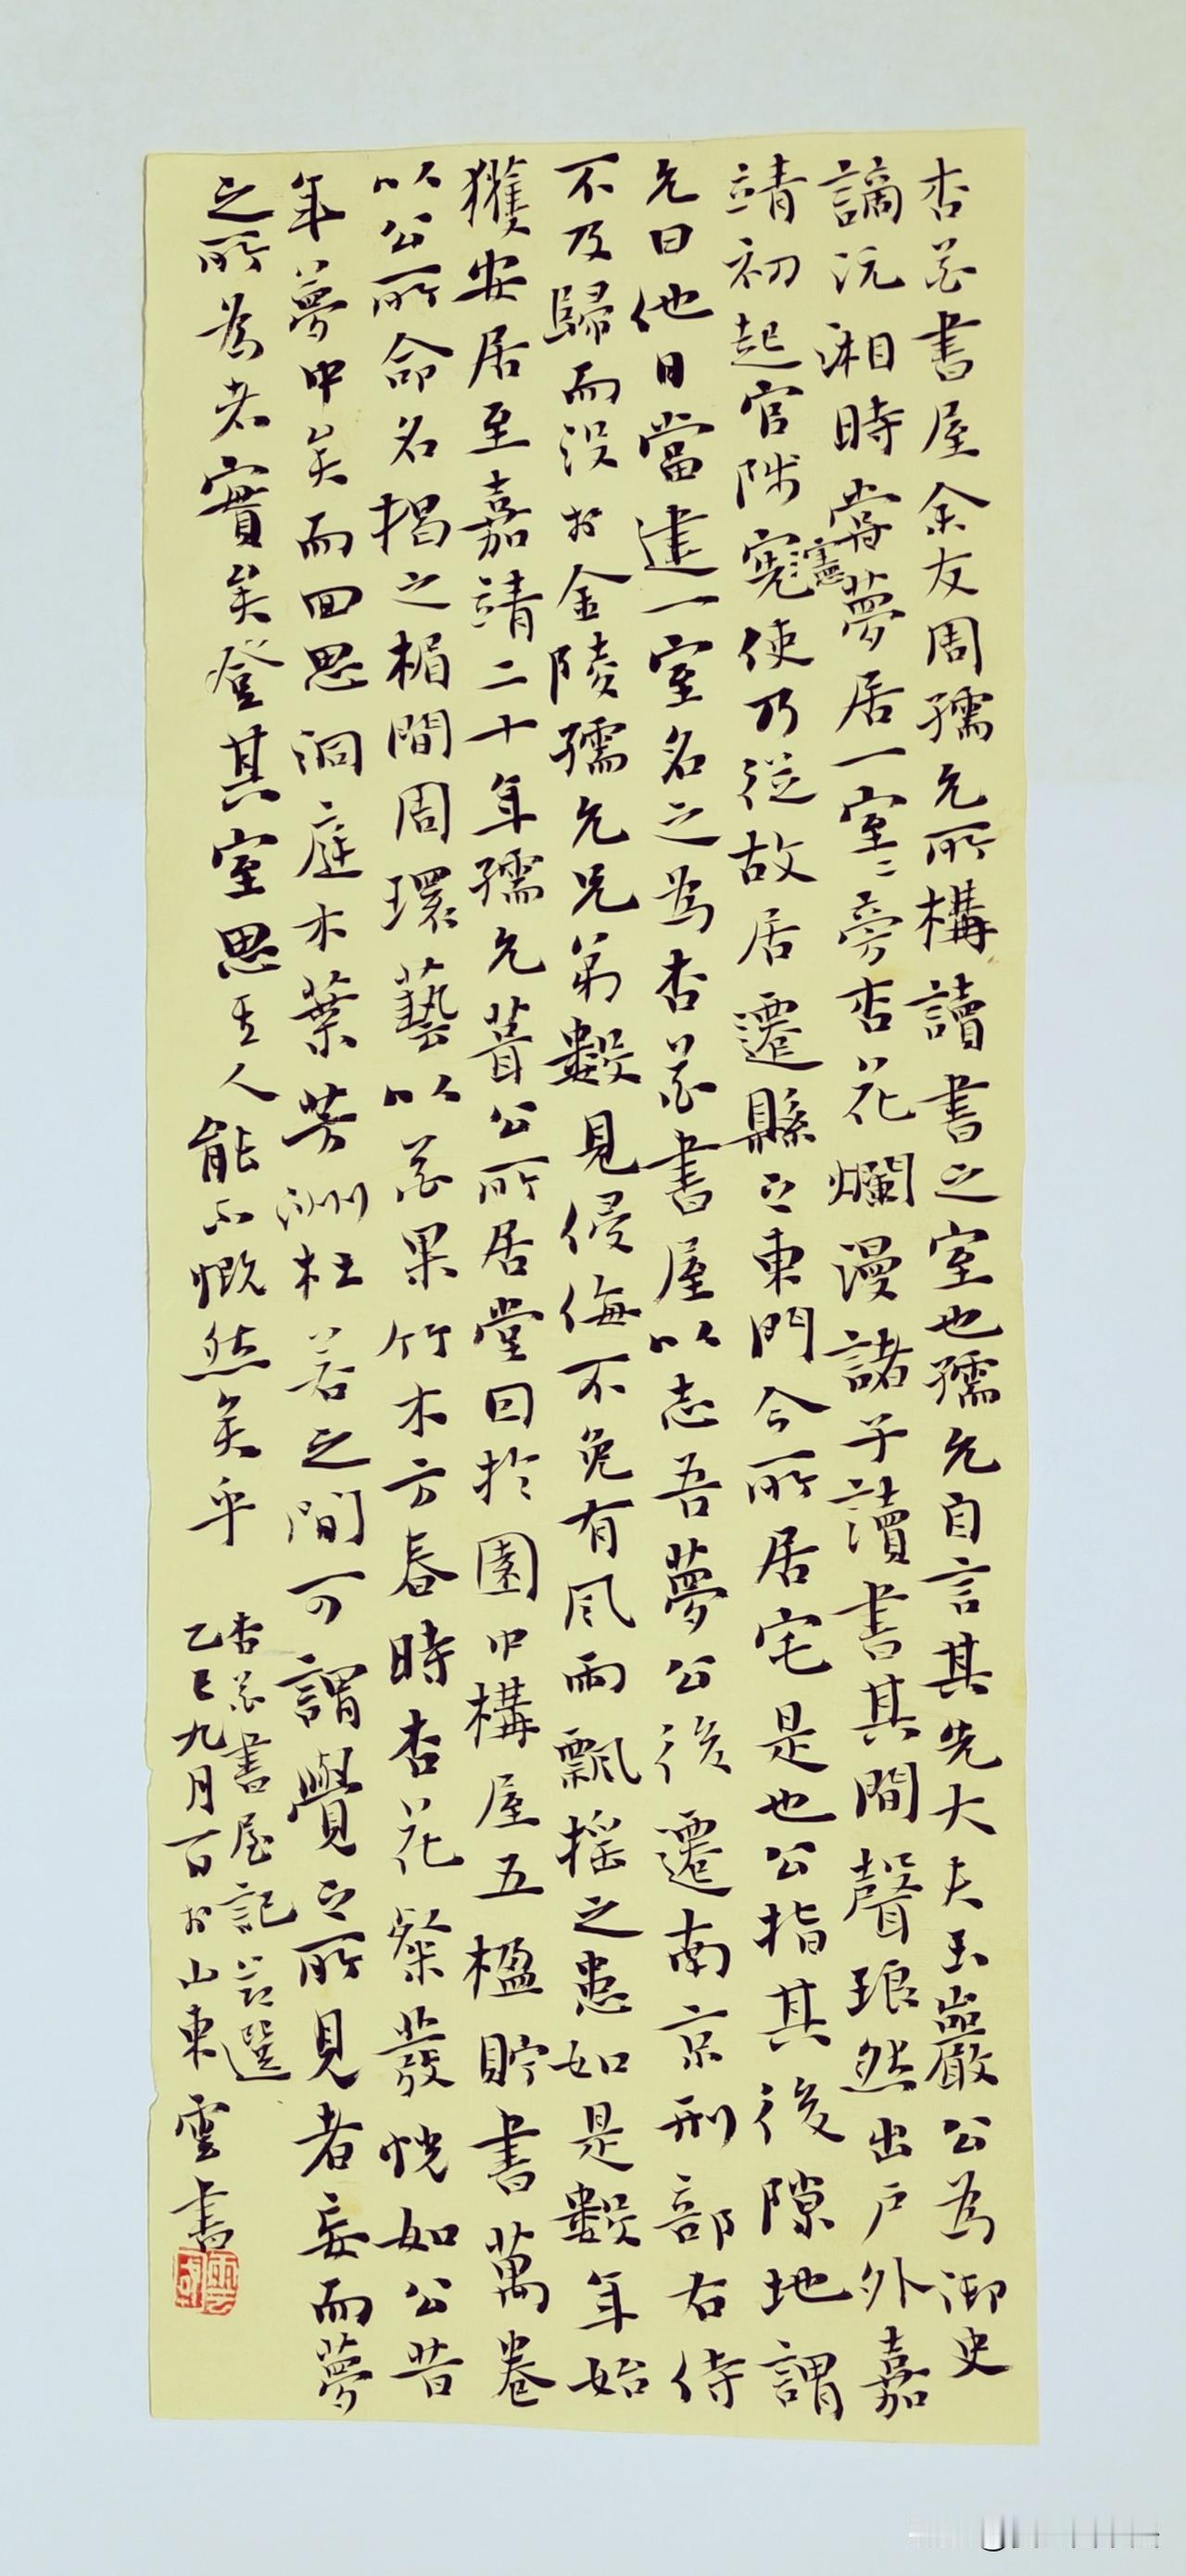 杏花書屋余友周孺允所構讀書之室也孺允自言其先大夫玉巖公為御史
謫沅湘時嘗夢居一室室旁杏花爛漫諸子讀書其間聲琅然出戶外嘉
靖初起官陟憲使乃從故居遷縣之東門今所居宅是也公指其後隙地謂
允曰他日當建一室名之為杏花書屋以志吾夢公後遷南京刑部右侍
不及歸而没於金陵孺允兄弟數見侵侮不免有風雨飄摇之患如是數年始
獲安居至嘉靖二十年孺允葺公所居堂因於園中構屋五楹貯書萬卷
以公所命名揭之楣間周環藝以花果竹木方春時杏花粲發恍如公昔
年夢中矣而回思洞庭木葉芳洲杜若之間可謂覺之所見者妄而夢
之所為者實矣登其室思其人能不慨然矣乎
杏花書屋記節選
乙巳九月百於山東雲書